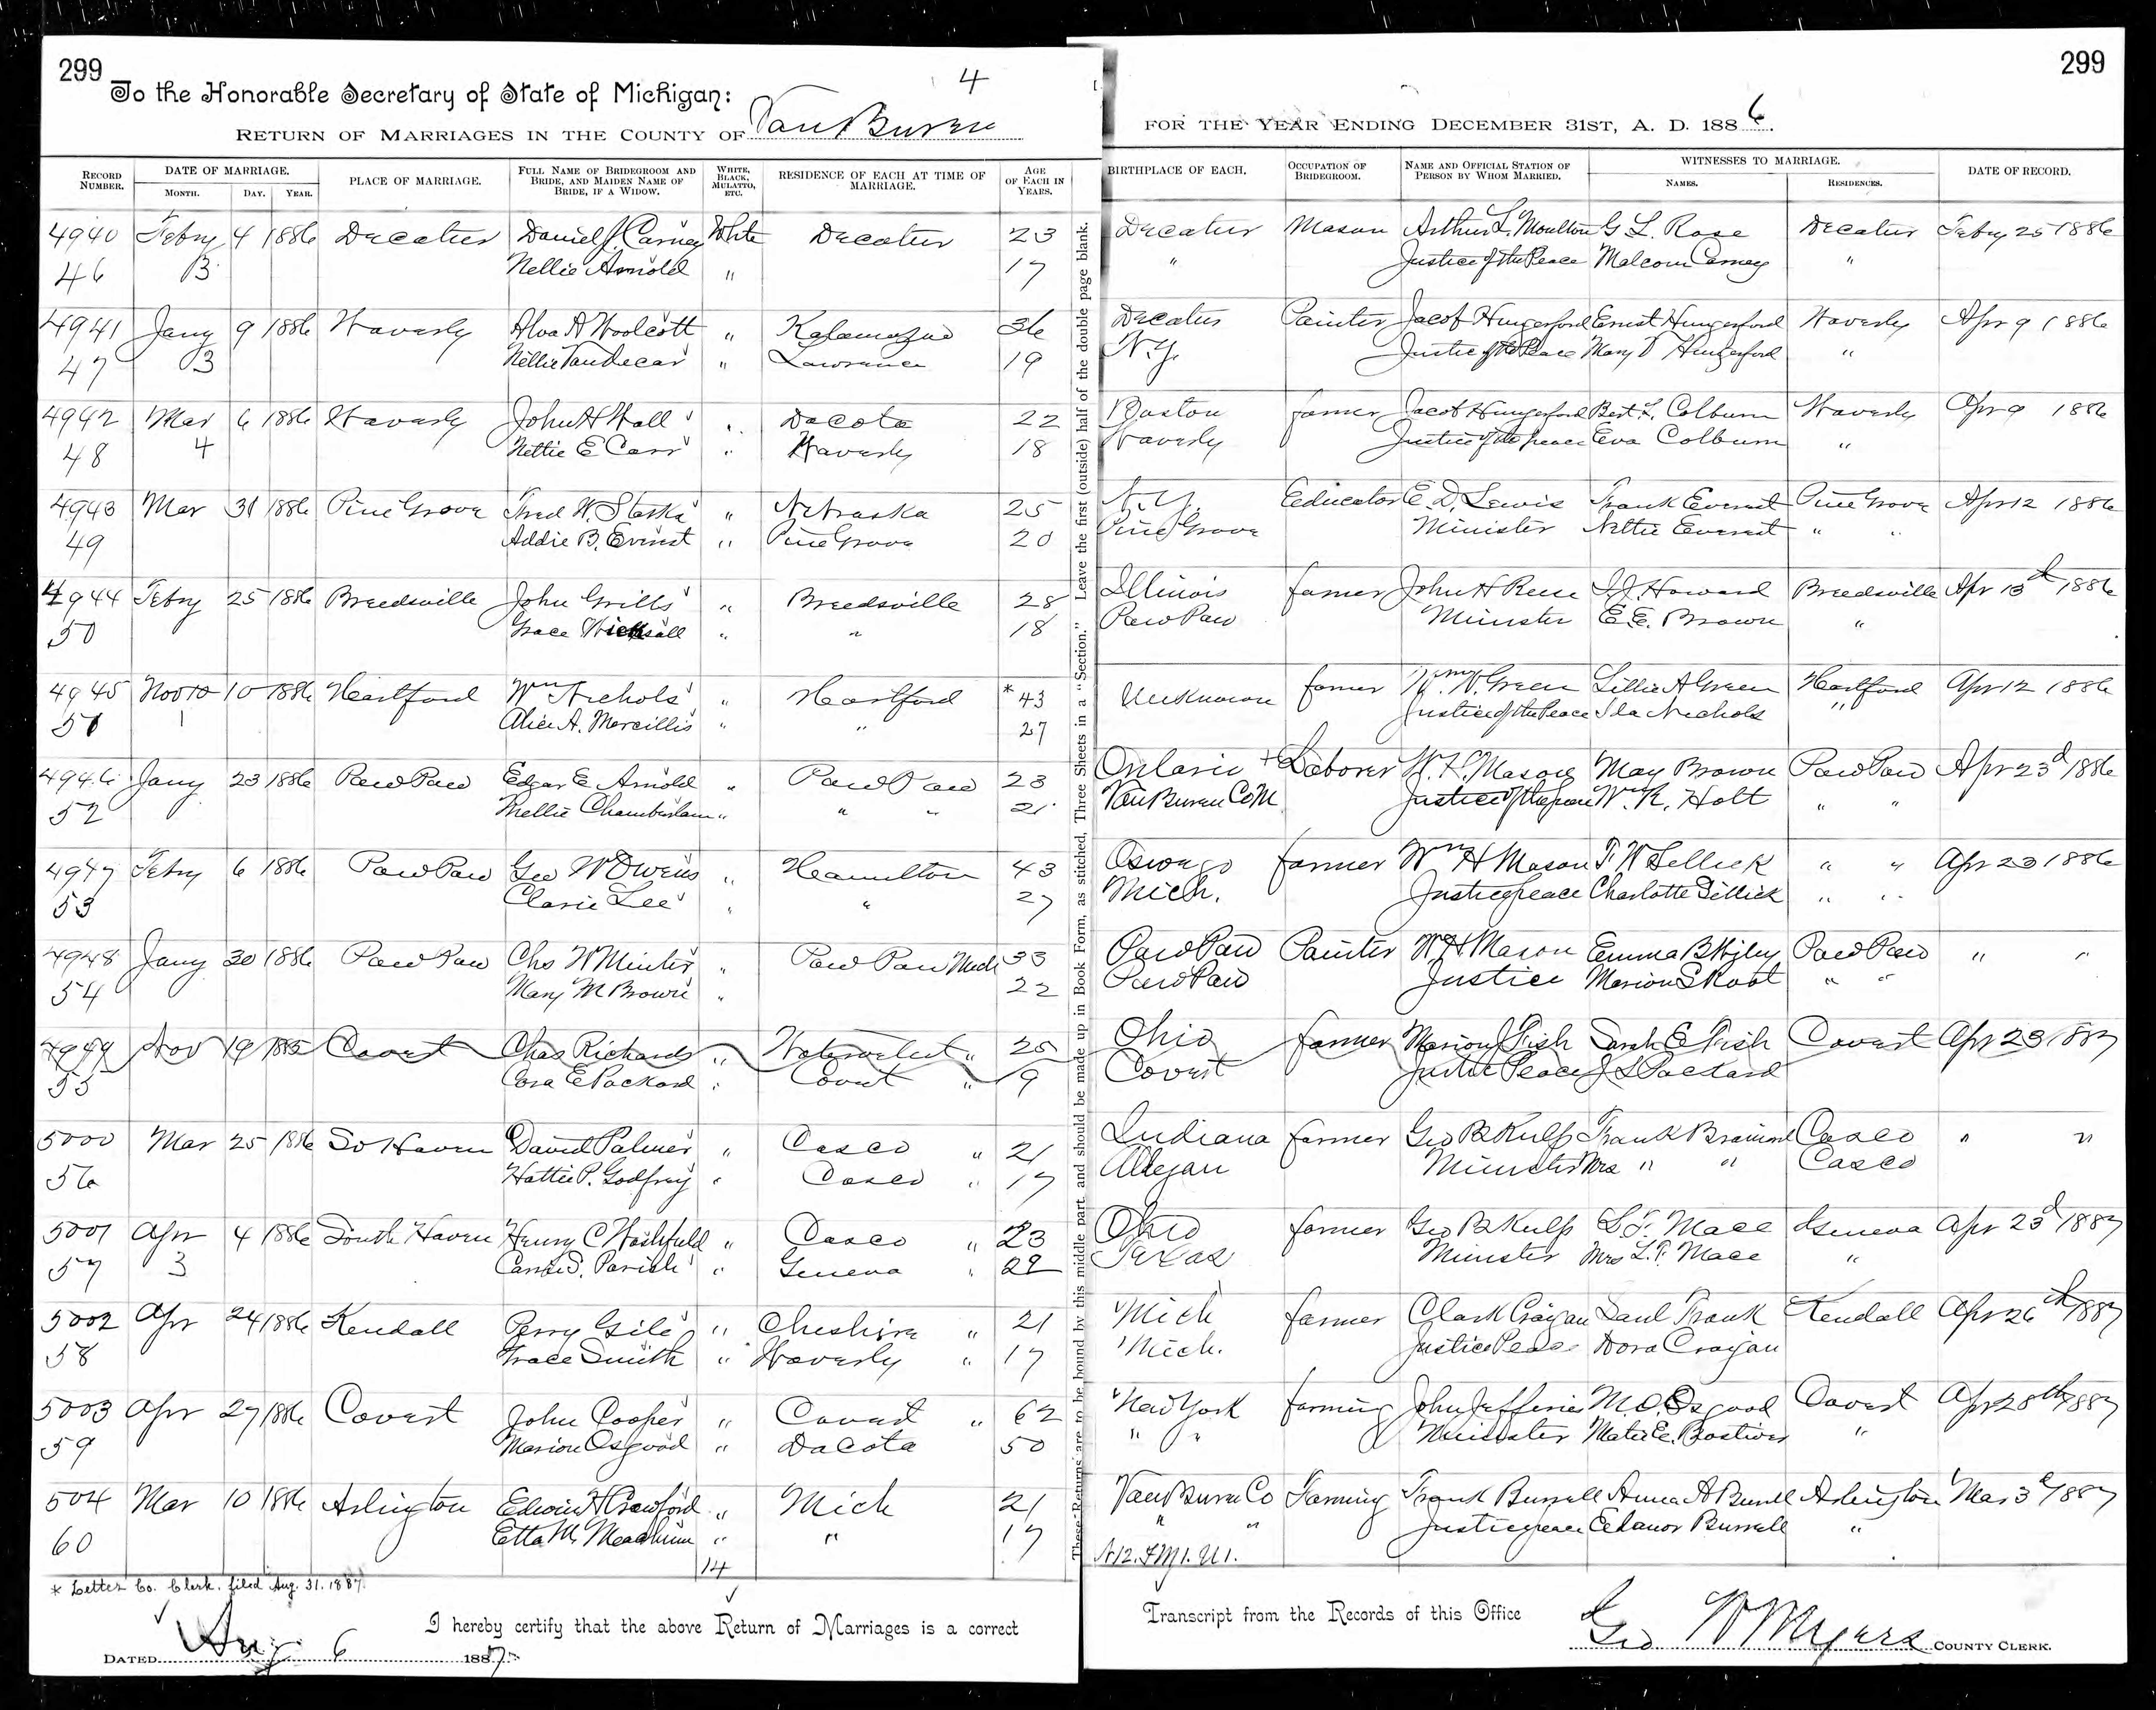 299
To the Honorable Secretary of State of Michigan:
4
RETURN OF MARRIAGES IN THE COUNTY OF Van Buren
RECORD NUMBER. DATE OF MARRIAGE. MONTH. DAY. YEAR. PLACE OF MARRIAGE. FULL NAME OF BRIDEGROOM AND BRIDE, AND MAIDEN NAME OF BRIDE, IF A WIDOW. WHITE, BLACK, MULATTO, ETC. RESIDENCE OF EACH AT TIME OF MARRIAGE. AGE OF EACH IN YEARS.
4940 Febry 4 1886 Decatur Daniel J. Carney White Decatur 23
46 3 Nellie Arnold " 17
4941 Jany 9 1886 Waverly Alva A Woolcott " Kalamazoo 36
47 3 Nellie Vandecar " Lawrence 19
4942 Mar 6 1886 Waverly John H Hall " Dacota 22
48 4 Nettie E Carr " Waverly 18
4943 Mar 31 1886 Pine Grove Fred W. " Nebraska 25
49 Addie B. Everest " Pine Grove 20
4944 Febry 25 1886 Breedsville John Grills " Breedsville 28
50 Grace " " 18
4945 Nov 10 10 1886 Hartford Wm Nichols " Hartford *43
51 1 Alice A. Marcillis " " 27
4946 Jany 23 1886 Paw Paw Edgar E Arnold " Paw Paw 23
52 Nellie Chamberlain " " " 21
4947 Febry 6 1886 Paw Paw Geo W Owens " Hamilton 43
53 Clarie Lee " " 27
4948 Jany 30 1886 Paw Paw Chs W Minter " Paw Paw Mich 33
54 Mary M Brown " 22
4949 Nov 19 1885 Covert Chas Richards " Watervliet " 25
55 Cora E Packard " Covert " 19
5000 Mar 25 1886 So Haven David Palmer " Casco " 21
56 Hattie P. Godfrey " Casco " 17
5001 Apr 4 1886 South Haven Henry C " Casco " 23
57 3 Carrie S. Parish " Geneva " 22
5002 Apr 24 1886 Kendall Perry Gile " Cheshire " 21
58 Grace Smith " Waverly " 17
5003 Apr 27 1886 Covert John Cooper " Covert " 62
59 Marion Osgood " Dacota 50
504 Mar 10 1886 Arlington Edwin H Crawford " Mich 21
60 Etta M. Meachum " " 17
14
* Letter Co. Clerk. filed Aug. 31. 1887.
I hereby certify that the above Return of Marriages is a correct
DATED Aug 6 1887
These Returns are to be bound by this middle part and should be made up in Book Form, as stitched, Three Sheets in a "Section." Leave the first (outside) half of the double page blank.
299
FOR THE YEAR ENDING DECEMBER 31ST, A. D. 1886.
BIRTHPLACE OF EACH. OCCUPATION OF BRIDEGROOM. NAME AND OFFICIAL STATION OF PERSON BY WHOM MARRIED. WITNESSES TO MARRIAGE. NAMES. RESIDENCES. DATE OF RECORD.
Decatur Mason Arthur L. Moulton G L. Rose Decatur Febry 25 1886
" Justice of the Peace Malcom Carney "
Decatur Painter Jacob Hungerford Ernest Hungerford Waverly Apr 9 1886
N.Y. Justice of the Peace Mary V Hungerford "
Boston farmer Jacob Hungerford Bert L. Colburn Waverly Apr 9 1886
Waverly Justice of the peace Eva Colburn "
N.Y. Educator E. D. Lewis Frank Everest Pine Grove Apr 12 1886
Pine Grove Minister Nettie Everest " "
Illinois farmer John H Reese I. J. Howard Breedsville Apr 13th 1886
Paw Paw Minister E E. Brown "
Unknown farmer Wm. W. Green Lillie A Green Hartford Apr 12 1886
Justice of the Peace Ida Nichols "
Ontario + Laborer W. H. Mason May Brown Paw Paw Apr 23d 1886
Van Buren Co M Justice of the peace Wm R. Holt " "
Oswego farmer Wm H Mason F W Sellick " " Apr 23 1886
Mich. Justice peace Charlotte Sellick " "
Paw Paw Painter W H Mason Emma B Wigley Paw Paw " "
Paw Paw Justice Marion S Root " "
Ohio farmer Marion J Fish Sarah E Fish Covert Apr 23 1887
Covert Just of Peace J L Packard
Indiana farmer Geo B Kulp Frank Brainard Casco " "
Allegan Minister Mrs " " Casco
Ohio farmer Geo B Kulp L. F. Mace Geneva Apr 23d 1887
Texas Minister Mrs L. F. Mace "
Mich farmer Clark Cragan Saul Frank Kendall Apr 26th 1887
Mich. Justice Peace Dora Cragan
New York farming John Jefferies M. O. Osgood Covert Apr 28th 1887
" " Minister "
Van Buren Co Farming Frank Burrell Anna A Burrell Arlington Mar 3d 1887
" " Justice peace Eleanor Burrell "
N12. FM1. U1.
Transcript from the Records of this Office
Geo W Myers COUNTY CLERK.